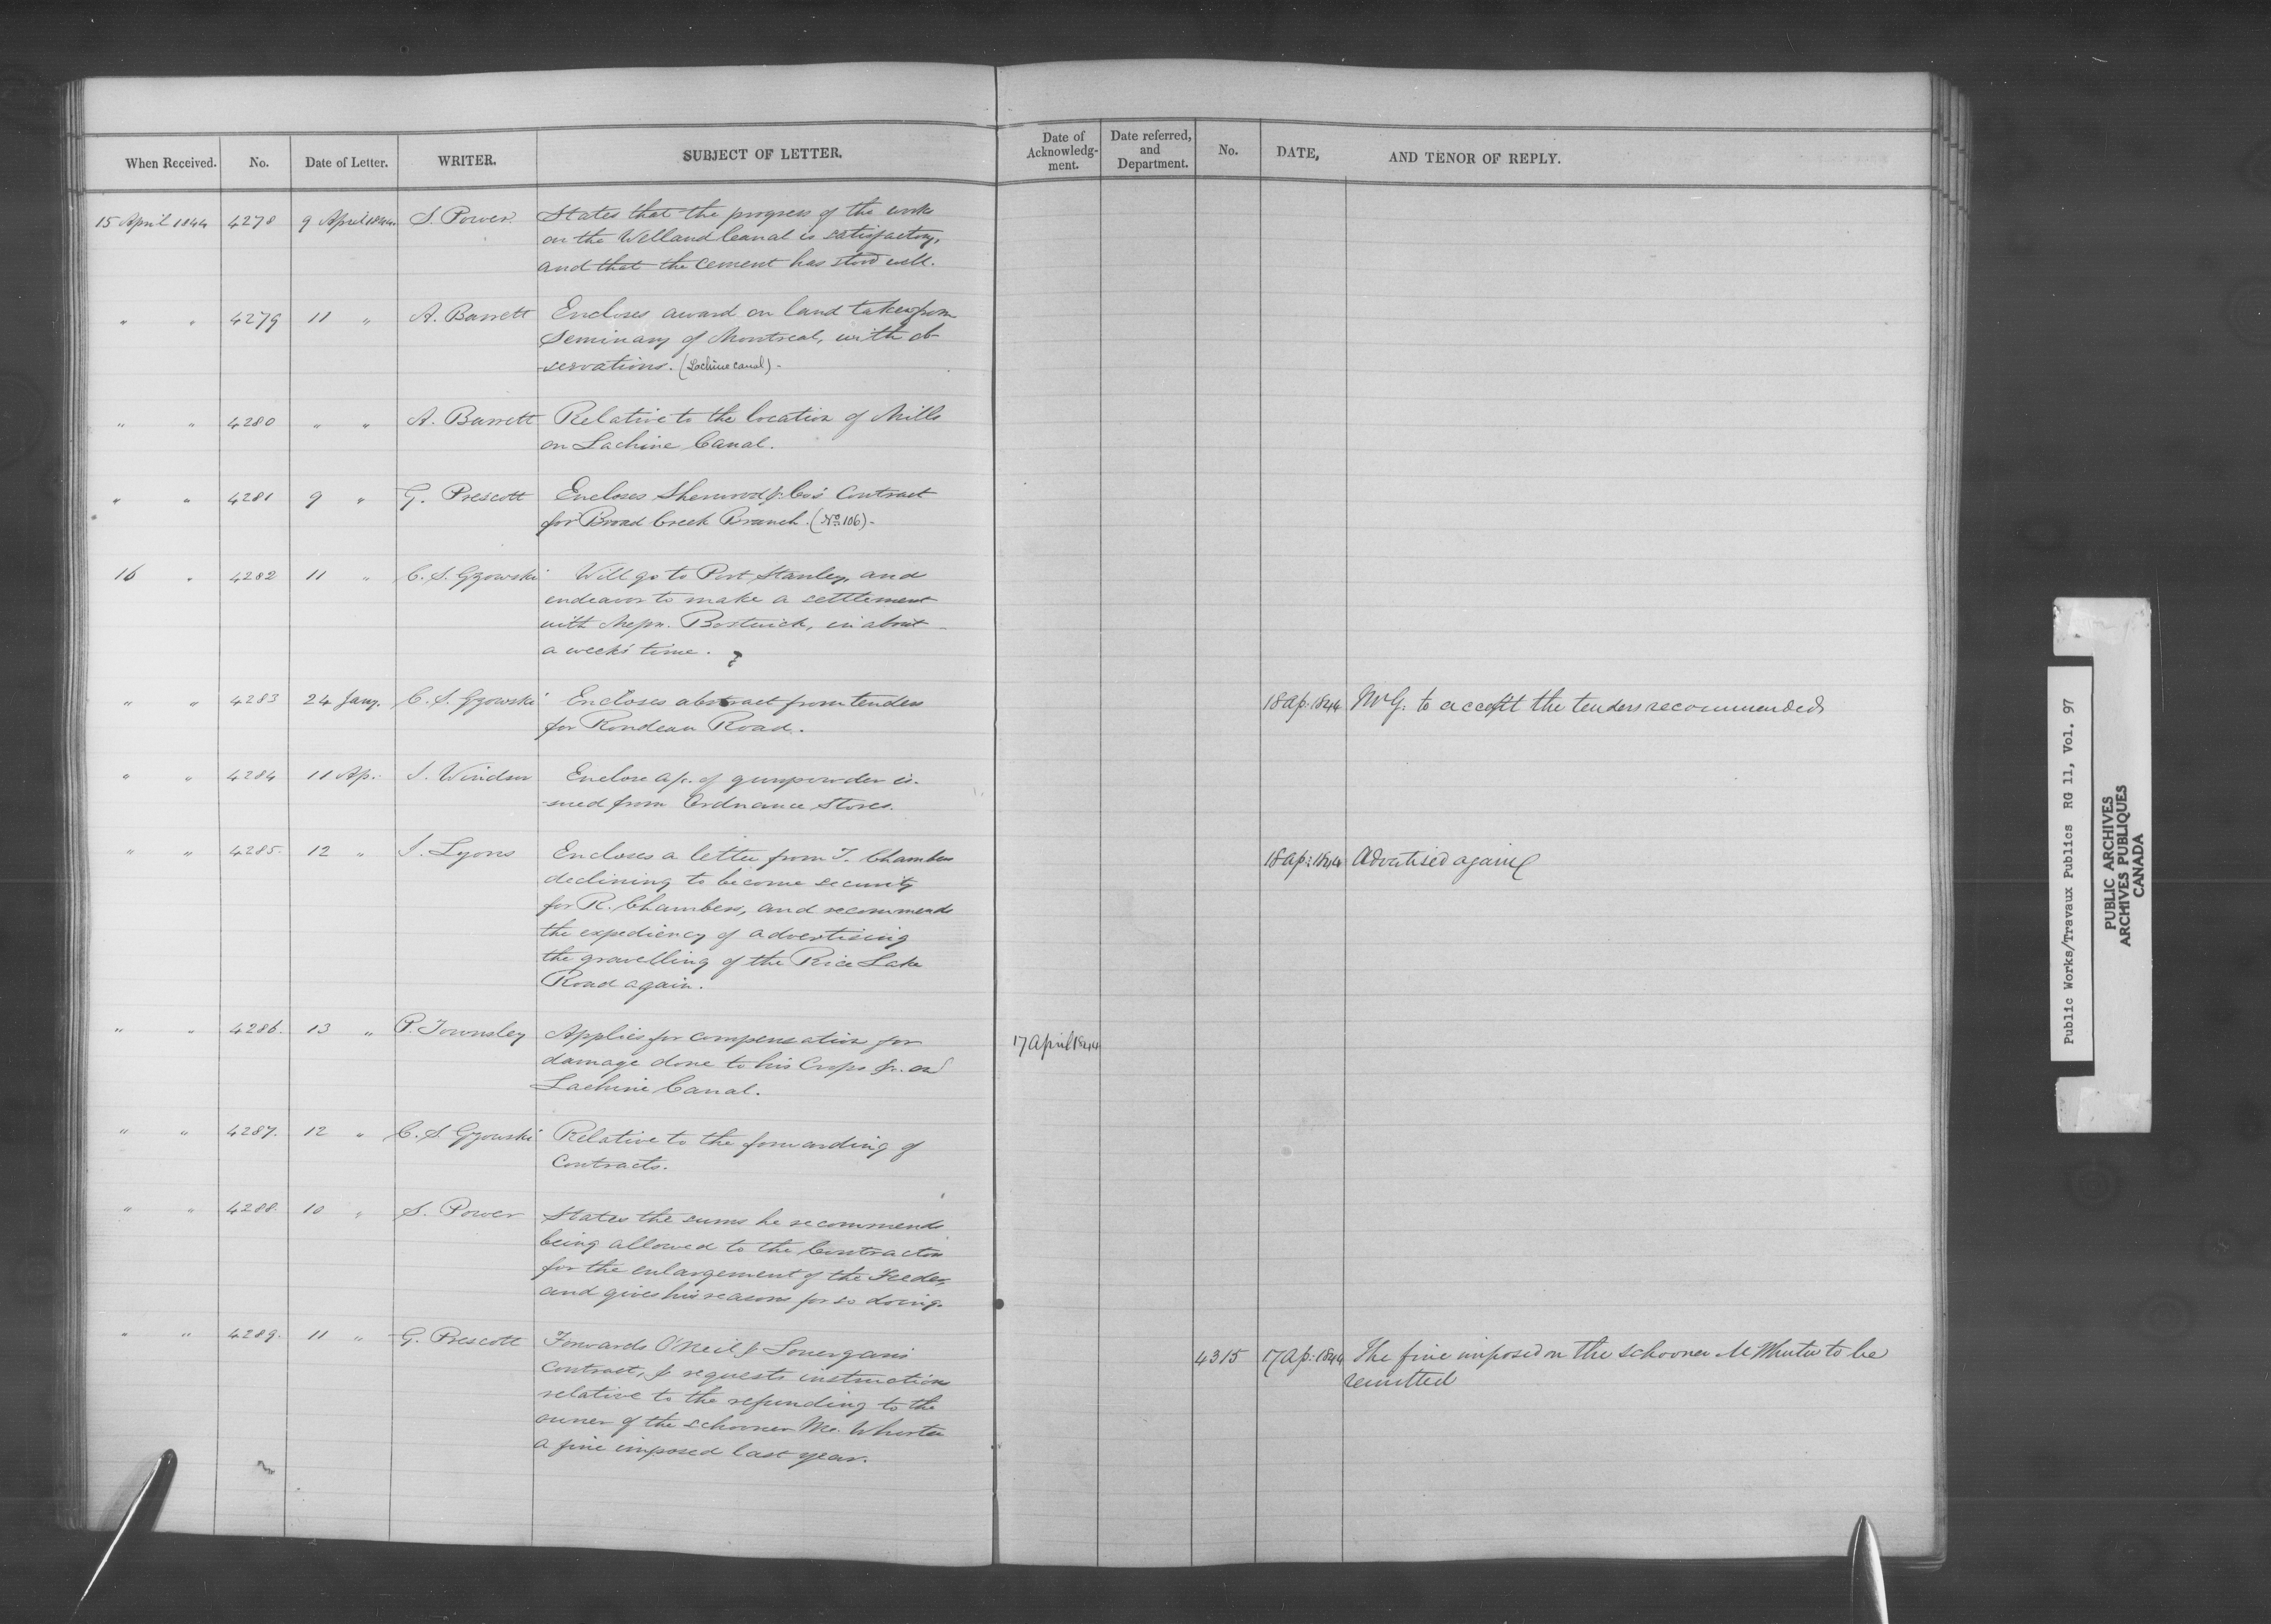 When Received. No. Date of Letter. WRITER. SUBJECT OF LETTER. Date of Acknowledg-ment. Date referred, and Department. No. DATE, AND TENOR OF REPLY.
15 April 1844 4278 9 April 1844 S. Power States that the progress of the works
on the Welland Canal is satisfactory,
and that the cement has stood well.
" " 4279 11 " A. Barrett Encloses award on land taken from
Seminary of Montreal, with ob-
servations. (Lachine canal) -
" " 4280 " " A. Barrett Relative to the location of Mills
on Lachine Canal.
" " 4281 9 " G. Prescott Encloses Sherwood & Co's Contract
for Broad Creek Branch. (No 106) -
16 " 4282 11 " C. S. Gzowski Will go to Port Stanley, and
endeavor to make a settlement
with Messrs. Bostwick, in about
a week's time.
" " 4283 24 Jany. C. S. Gzowski Encloses abstract from tenders 18 Ap: 1844 Mr G. to accept the tenders recommended
for Rondeau Road.
" " 4284 11 Ap: J. Windsor Enclose a/c. of gunpowder is-
sued from Ordnance Stores.
" " 4285. 12 " J. Lyons Encloses a letter from T. Chambers 18 Ap: 1844 Advertised again
declining to become security
for R. Chambers, and recommends
the expediency of advertising
the gravelling of the Rice Lake
Road again.
" " 4286. 13 " P. Townsley Applies for compensation for 17 April 1844
damage done to his Crops &c. on
Lachine Canal.
" " 4287. 12 " C. S. Gzowski Relative to the forwarding of
Contracts.
" " 4288. 10 " S. Power States the sums he recommends
being allowed to the Contractors
for the enlargement of the Feeder,
and gives his reasons for so doing.
" " 4289. 11 " G. Prescott Forwards O'Neil & Lonergan's 4315 17 Ap: 1844 The fine imposed on the schooner McWhirter to be
contract, & requests instruction remitted
relative to the refunding to the
owner of the schooner Mc. Whirter
a fine imposed last year.
Public Works/Travaux Publics RG 11, Vol. 97
PUBLIC ARCHIVES
ARCHIVES PUBLIQUES
CANADA